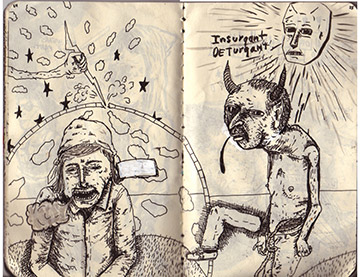 Insurgant
DETURGANT